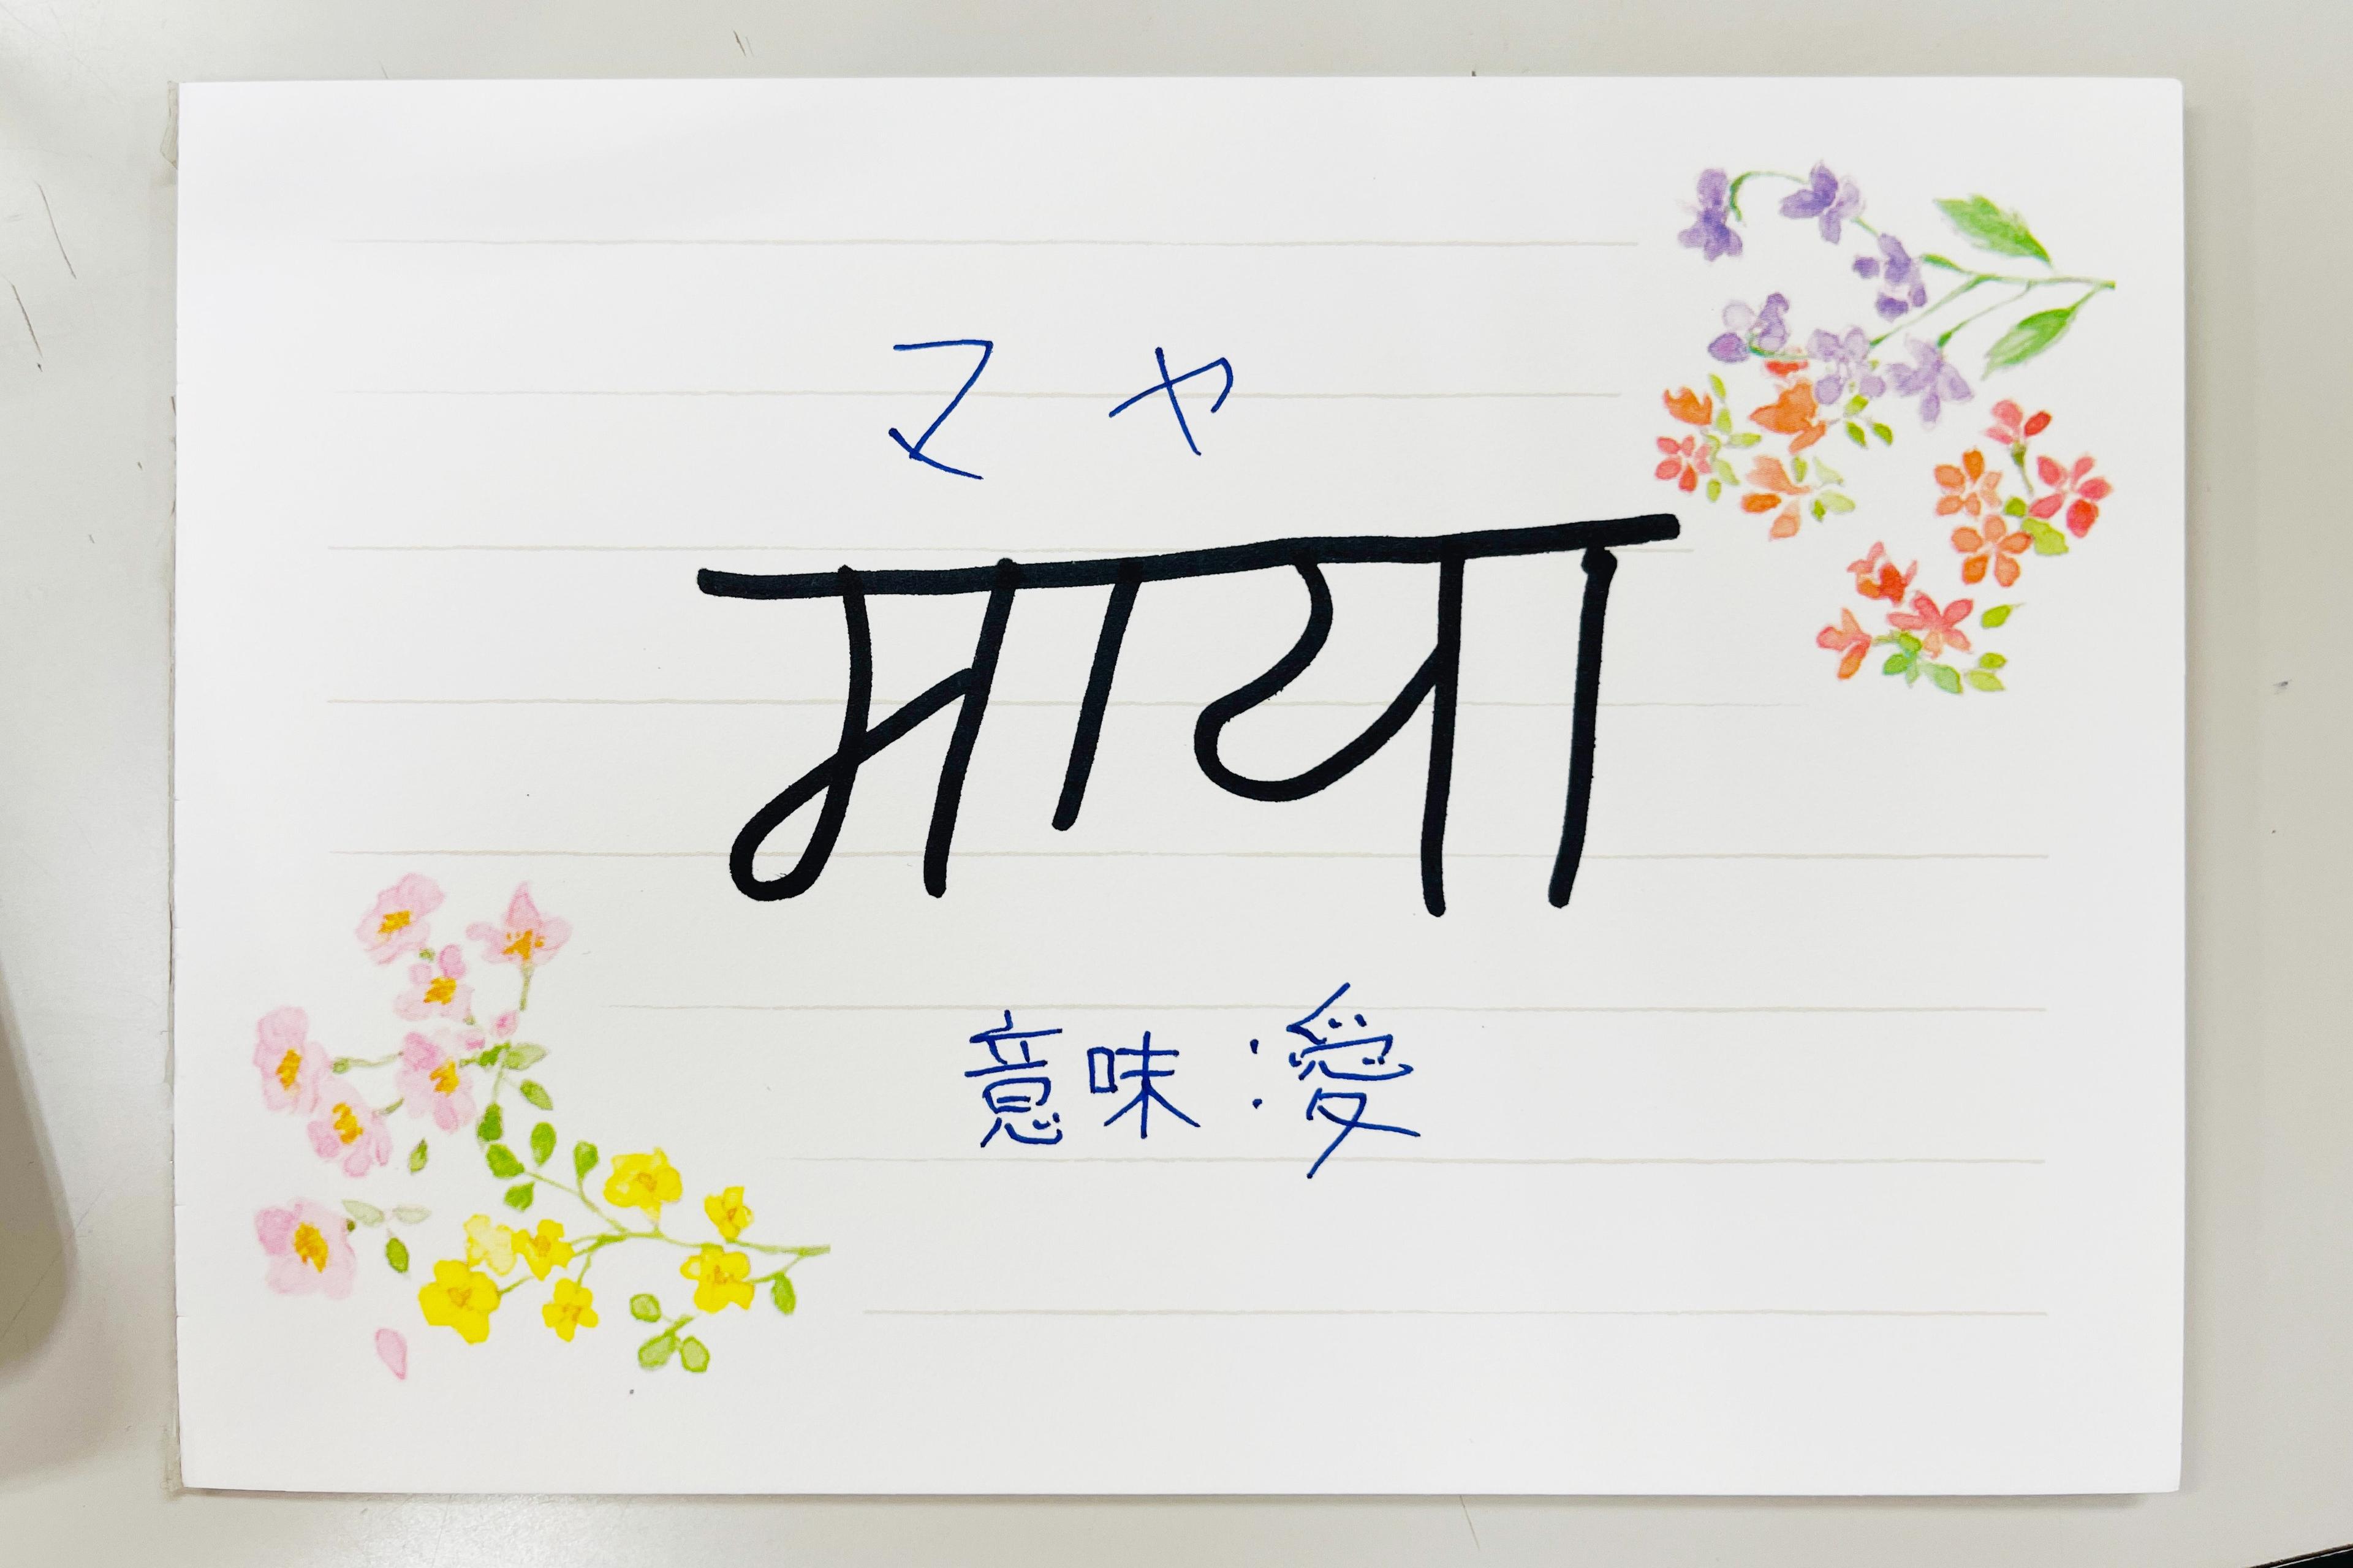 マヤ
माया
意味:愛